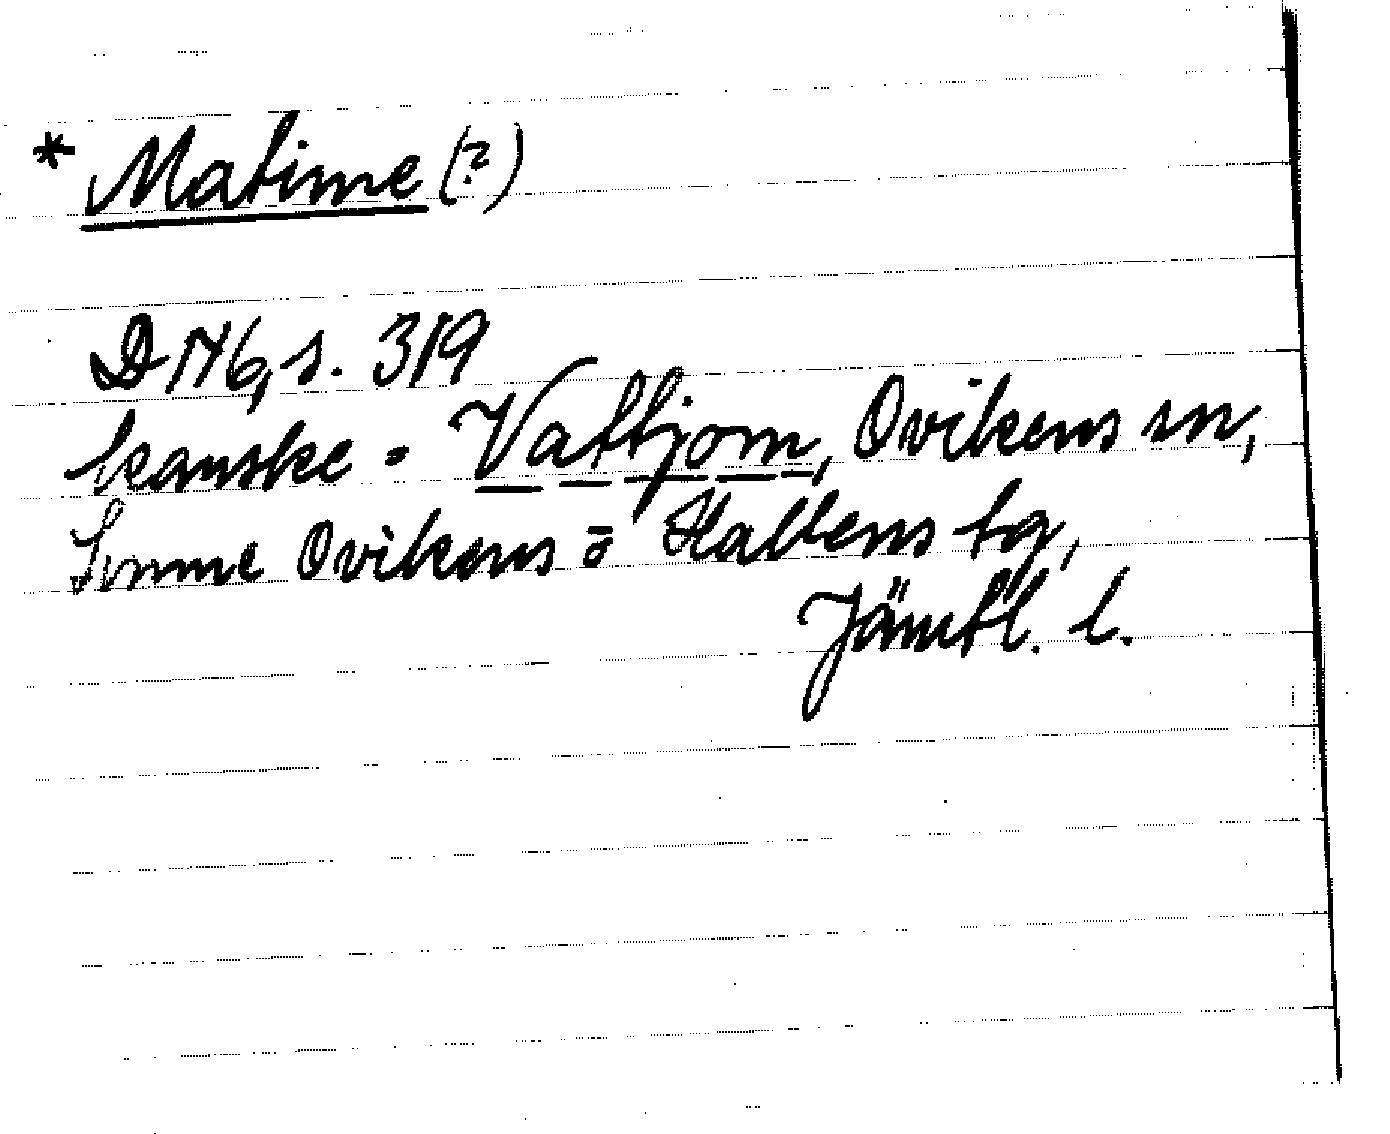 * Matime (?)
DN6, s. 319
kanske = Vattjom, Ovikens sn,
Sunne Ovikens o Hallens tg,
Jämtl. l.